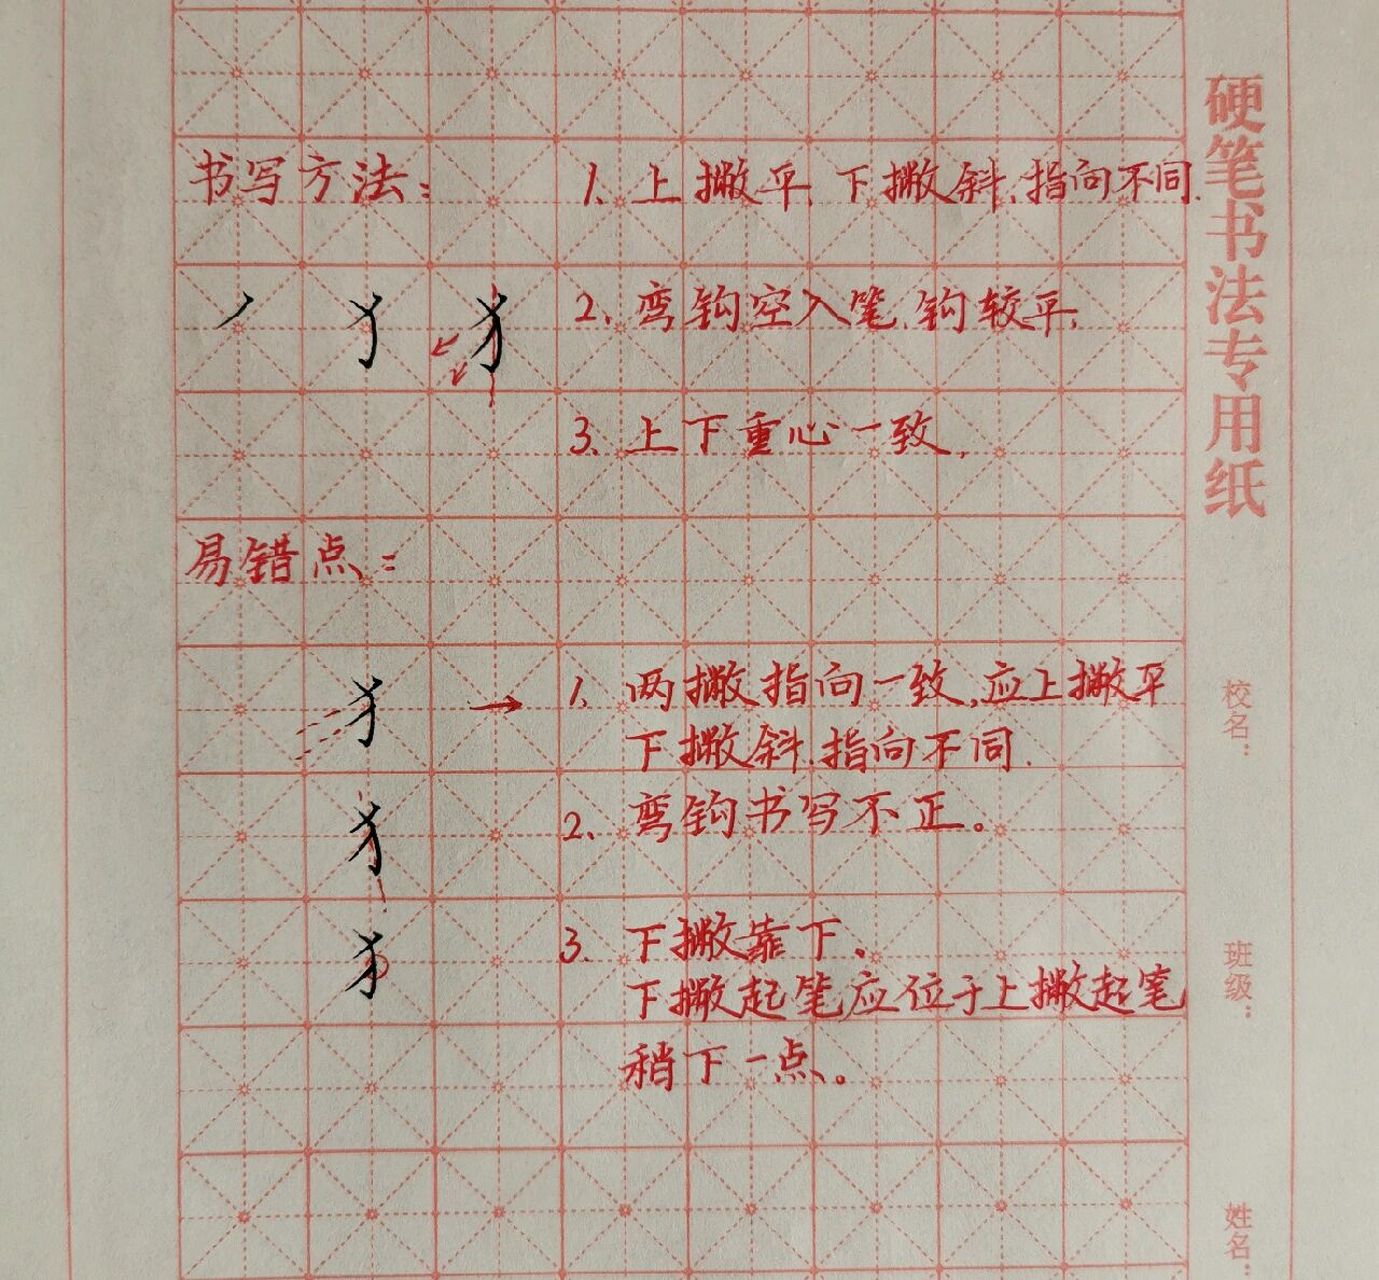 书写方法：
1、上撇平，下撇斜，指向不同.
丿 犭 犭
2、弯钩空入笔，钩较平，
3、上下重心一致，
易错点：
犭 → 1、两撇指向一致，应上撇平
下撇斜，指向不同.
犭 2、弯钩书写不正。
犭 3、下撇靠下。
下撇起笔应位于上撇起笔
稍下一点。
硬笔书法专用纸
校名：
班级：
姓名：